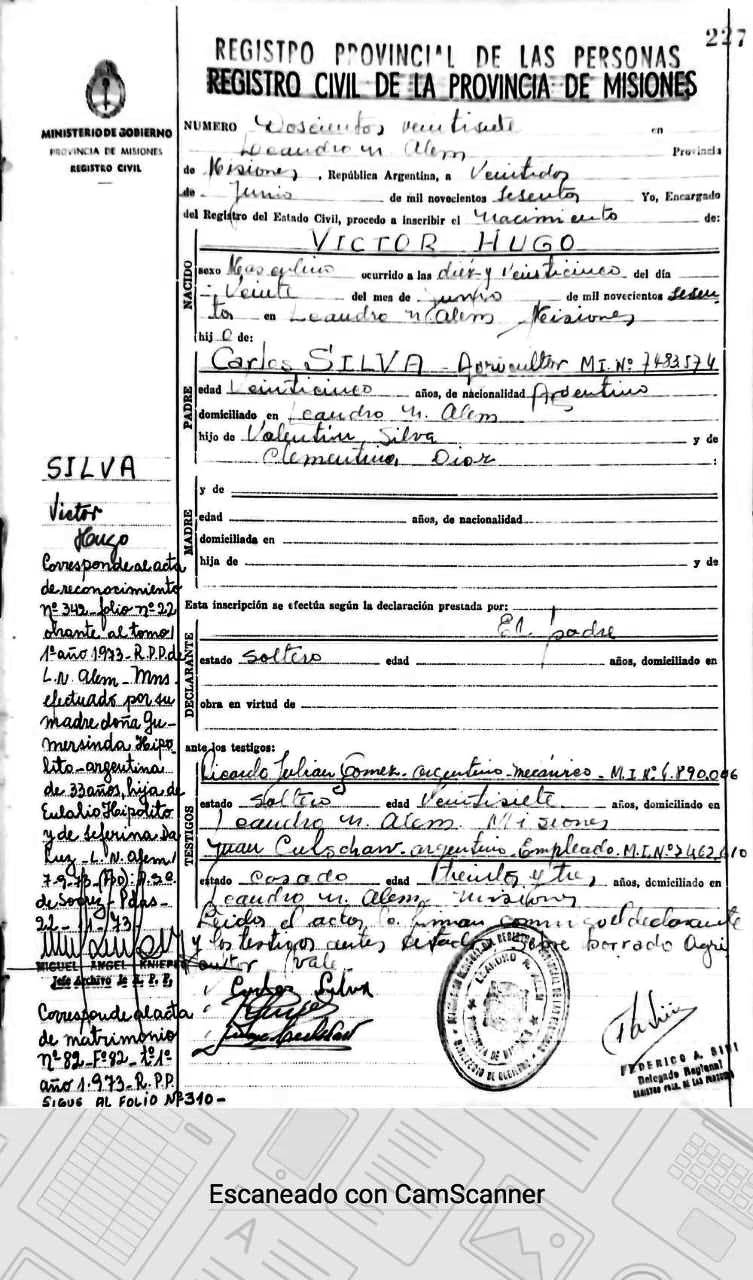 227
REGISTRO PROVINCIAL DE LAS PERSONAS
REGISTRO CIVIL DE LA PROVINCIA DE MISIONES
MINISTERIO DE GOBIERNO
PROVINCIA DE MISIONES
REGISTRO CIVIL
NUMERO Doscientos veintisiete en
Leandro N. Alem Provincia
de Misiones, República Argentina, a Veintidos
de Junio de mil novecientos sesenta Yo, Encargado
del Registro del Estado Civil, procedo a inscribir el nacimiento de:
NACIDO
VICTOR HUGO
sexo Masculino ocurrido a las diez y veinticinco del día
Veinte del mes de junio de mil novecientos sesen
ta en Leandro N. Alem Misiones
hijo de:
PADRE
Carlos SILVA - Agricultor M.I. Nº 7483574
edad Veinticinco años, de nacionalidad Argentino
domiciliado en Leandro N. Alem
hijo de Valentin Silva y de
Clementina Diaz :
MADRE
y de
edad años, de nacionalidad
domiciliada en
hija de y de
Esta inscripción se efectúa según la declaración prestada por:
DECLARANTE
El padre
estado soltero edad años, domiciliado en
obra en virtud de
ante los testigos:
TESTIGOS
Ricardo Julian Gomez - argentino - mecánico - M.I. Nº 6.890.096
estado soltero edad Veintisiete años, domiciliado en
Leandro N. Alem Misiones
Juan argentino - Empleado. M.I. Nº 7462610
estado casado edad treinta y tres años, domiciliado en
Leandro N. Alem - Misiones
Leida el acta la firman conmigo el declarante
y los testigos antes borrado Agri
cultor vale
Carlos Silva
SILVA
Victor
Hugo
Corresponde al acta
de reconocimiento
Nº 342 - folio nº 22
obrante al tomo
1º año 1973 - R.P.P. de
L.N. Alem - Mns
efectuado por su
madre doña Gu-
mersinda Hipo
lito - argentina
de 33 años, hija de
Eulalio Hipolito
y de Seferina Da
Luz - L. N. Alem
7-9-73
Pdas -
22-11-73
MIGUEL ANGEL
Jefe Archivo
Corresponde al acta
de matrimonio
Nº 82 - Fº 82 - tº 1º
año 1.973 - R.P.P.
SIGUE AL FOLIO Nº 310 -
LEANDRO N. ALEM
FEDERICO A.
Delegado Regional
Escaneado con CamScanner